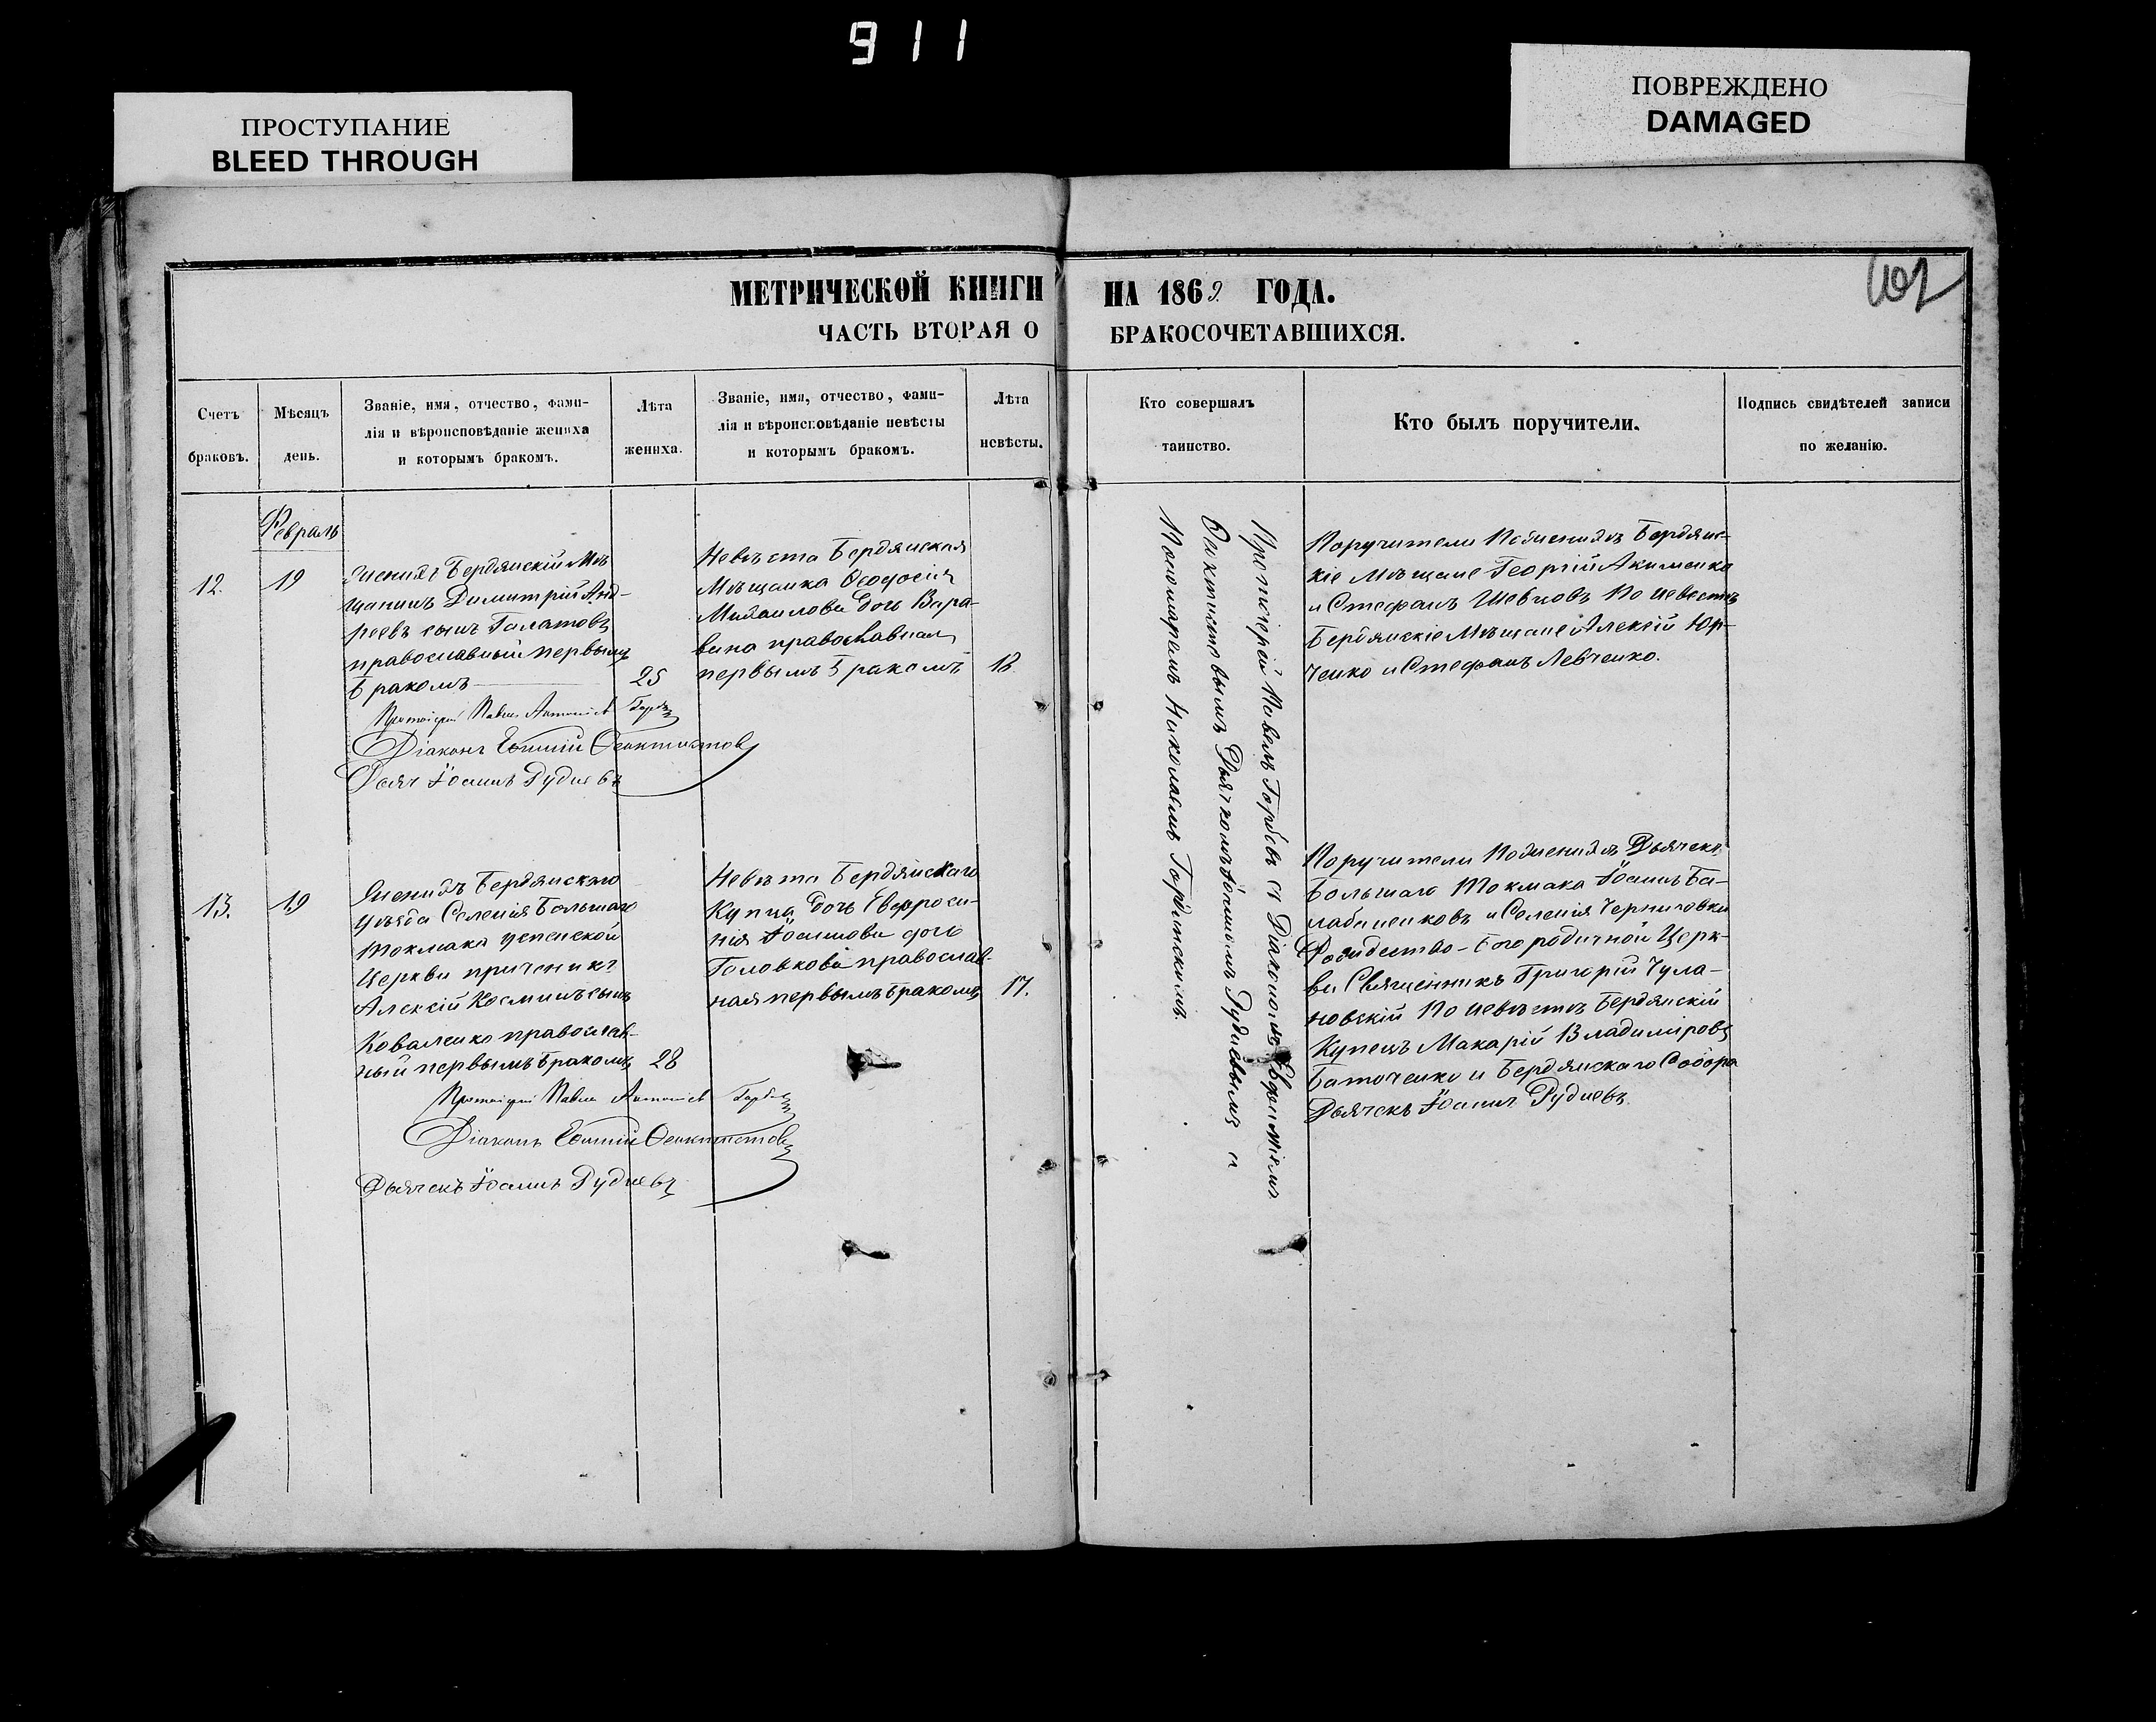 911
ПРОСТУПАНИЕ
BLEED THROUGH
ПОВРЕЖДЕНО
DAMAGED
МЕТРИЧЕСКОЙ КНИГИ НА 1869 ГОДА.
ЧАСТЬ ВТОРАЯ О БРАКОСОЧЕТАВШИХСЯ.
Счетъ
браковъ.
Мѣсяцъ
день.
Званіе, имя, отчество, фами-
лія и вѣроисповѣданіе жениха
и которымъ бракомъ.
Лѣта
жениха.
Званіе, имя, отчество, фами-
лія и вѣроисповѣданіе невѣсты
и которымъ бракомъ.
Лѣта
невѣсты.
Кто совершалъ
таинство.
Кто былъ поручители.
Подпись свидѣтелей записи
по желанію.
Февраль
12.
19
Женихъ Бердянскій Мѣ
щанинъ Димитрій Анд-
реевъ сынъ Галатовъ
православный первымъ
бракомъ
25
Невѣста Бердянская
Мѣщанка Ѳеодосія
Михаилова дочь Вара-
вина православная
первымъ бракомъ
18
Протоіерей Павелъ Горбовъ съ Діакономъ Евфиміемъ
Ѳеоктистовымъ Дьячкомъ Іоанномъ Рудневымъ и
Пономаремъ Николаемъ
Поручители По женихѣ Бердянс-
кіе Мѣщане Георгій Акименко
и Стефанъ Шевцовъ По невестѣ
Бердянскіе Мѣщане Алексій Юр-
ченко и Стефанъ Левченко.
Протоіерей Павелъ
Діаконъ Евфимій Ѳеоктистовъ
Дьяч Іоаннъ Рудневъ
13.
19
Женихъ Бердянскаго
Уѣзда Селенія Большаго
Токмака Успенской
Церкви причетникъ
Алексій Косминъ сынъ
Коваленко православ-
ный первымъ бракомъ
28
Невѣста Бердянскаго
Купца дочь Евфроси-
нія Іоаннова дочь
Головкова православ-
ная первымъ бракомъ
17.
Поручители По женихѣ Дьячекъ
Большаго Токмака Іоаннъ Ба-
и Селенія Черниговки
Рождество-Богородичной Церк-
ви Священникъ Григорій Чула-
новскій По невѣстѣ Бердянскій
Купецъ Макарій Владиміровъ
и Бердянскаго Собора
Дьячекъ Іоаннъ Рудневъ.
Протоіерей Павелъ
Діаконъ Евфимій Ѳеоктистовъ
Дьячекъ Іоаннъ Рудневъ